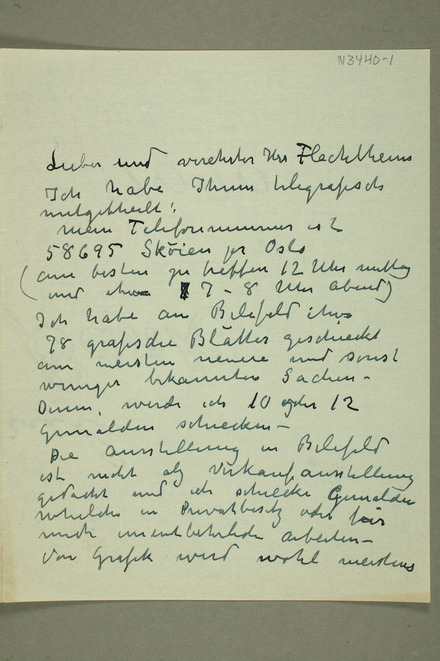 N3440-1
Lieber und verehrter Herr Flechtheim
Ich habe Ihnen telegrafisch
mitgetheilt:
mein Telefonnummer ist
58695 Skøien per Oslo
(am besten zu treffen 12 Uhr mittag
und etwa 7-8 Uhr abend)
Ich habe an Bilefeld etwa
78 grafische Blätter geschickt
am meisten neuere und sonst
weniger bekannten Sachen –
Dann, werde ich 10 oder 12
Gemälden schicken –
Die Ausstellung in Bilefeld
ist nicht als Verkaufausstellung
gedacht und ich schicke Gemälden
welche in Privatbesitz oder für
mich unentbehrliche arbeiten –
Von Grafik wird wohl meistens